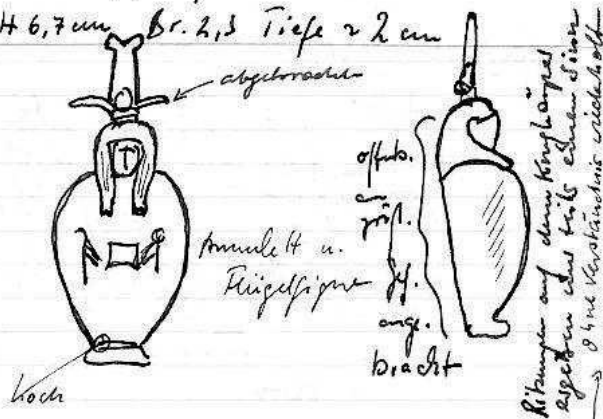 H 6,7 cm Br. 2,3 Tiefe ~ 2 cm
abgebrochen
Amulett u.
Flügelfigur
Loch
offenb.
an
größ.
Gef.
ange-
bracht
Ritzungen auf dem Krughänge
ergeben nur teils einen Sinn
→ ohne Verständnis wiederholt